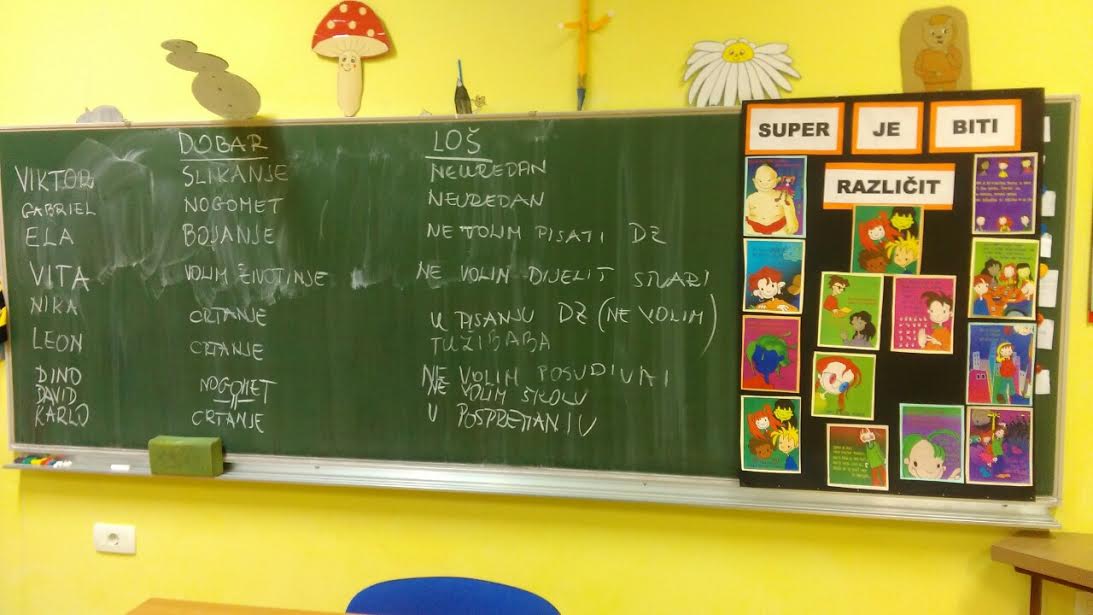 DOBAR LOŠ
VIKTOR SLIKANJE NEUREDAN
GABRIEL NOGOMET NEUREDAN
ELA BOJANJE NE VOLIM PISATI DZ
VITA VOLIM ŽIVOTINJE NE VOLIM DIJELIT STVARI
NIKA CRTANJE U PISANJU DZ (NE VOLIM)
LEON CRTANJE TUŽIBABA
DINO NOGOMET NE VOLIM POSUĐIVATI
DAVID –II– NE VOLIM ŠKOLU
KARLO CRTANJE U POSPREMANJU
SUPER JE BITI
RAZLIČIT